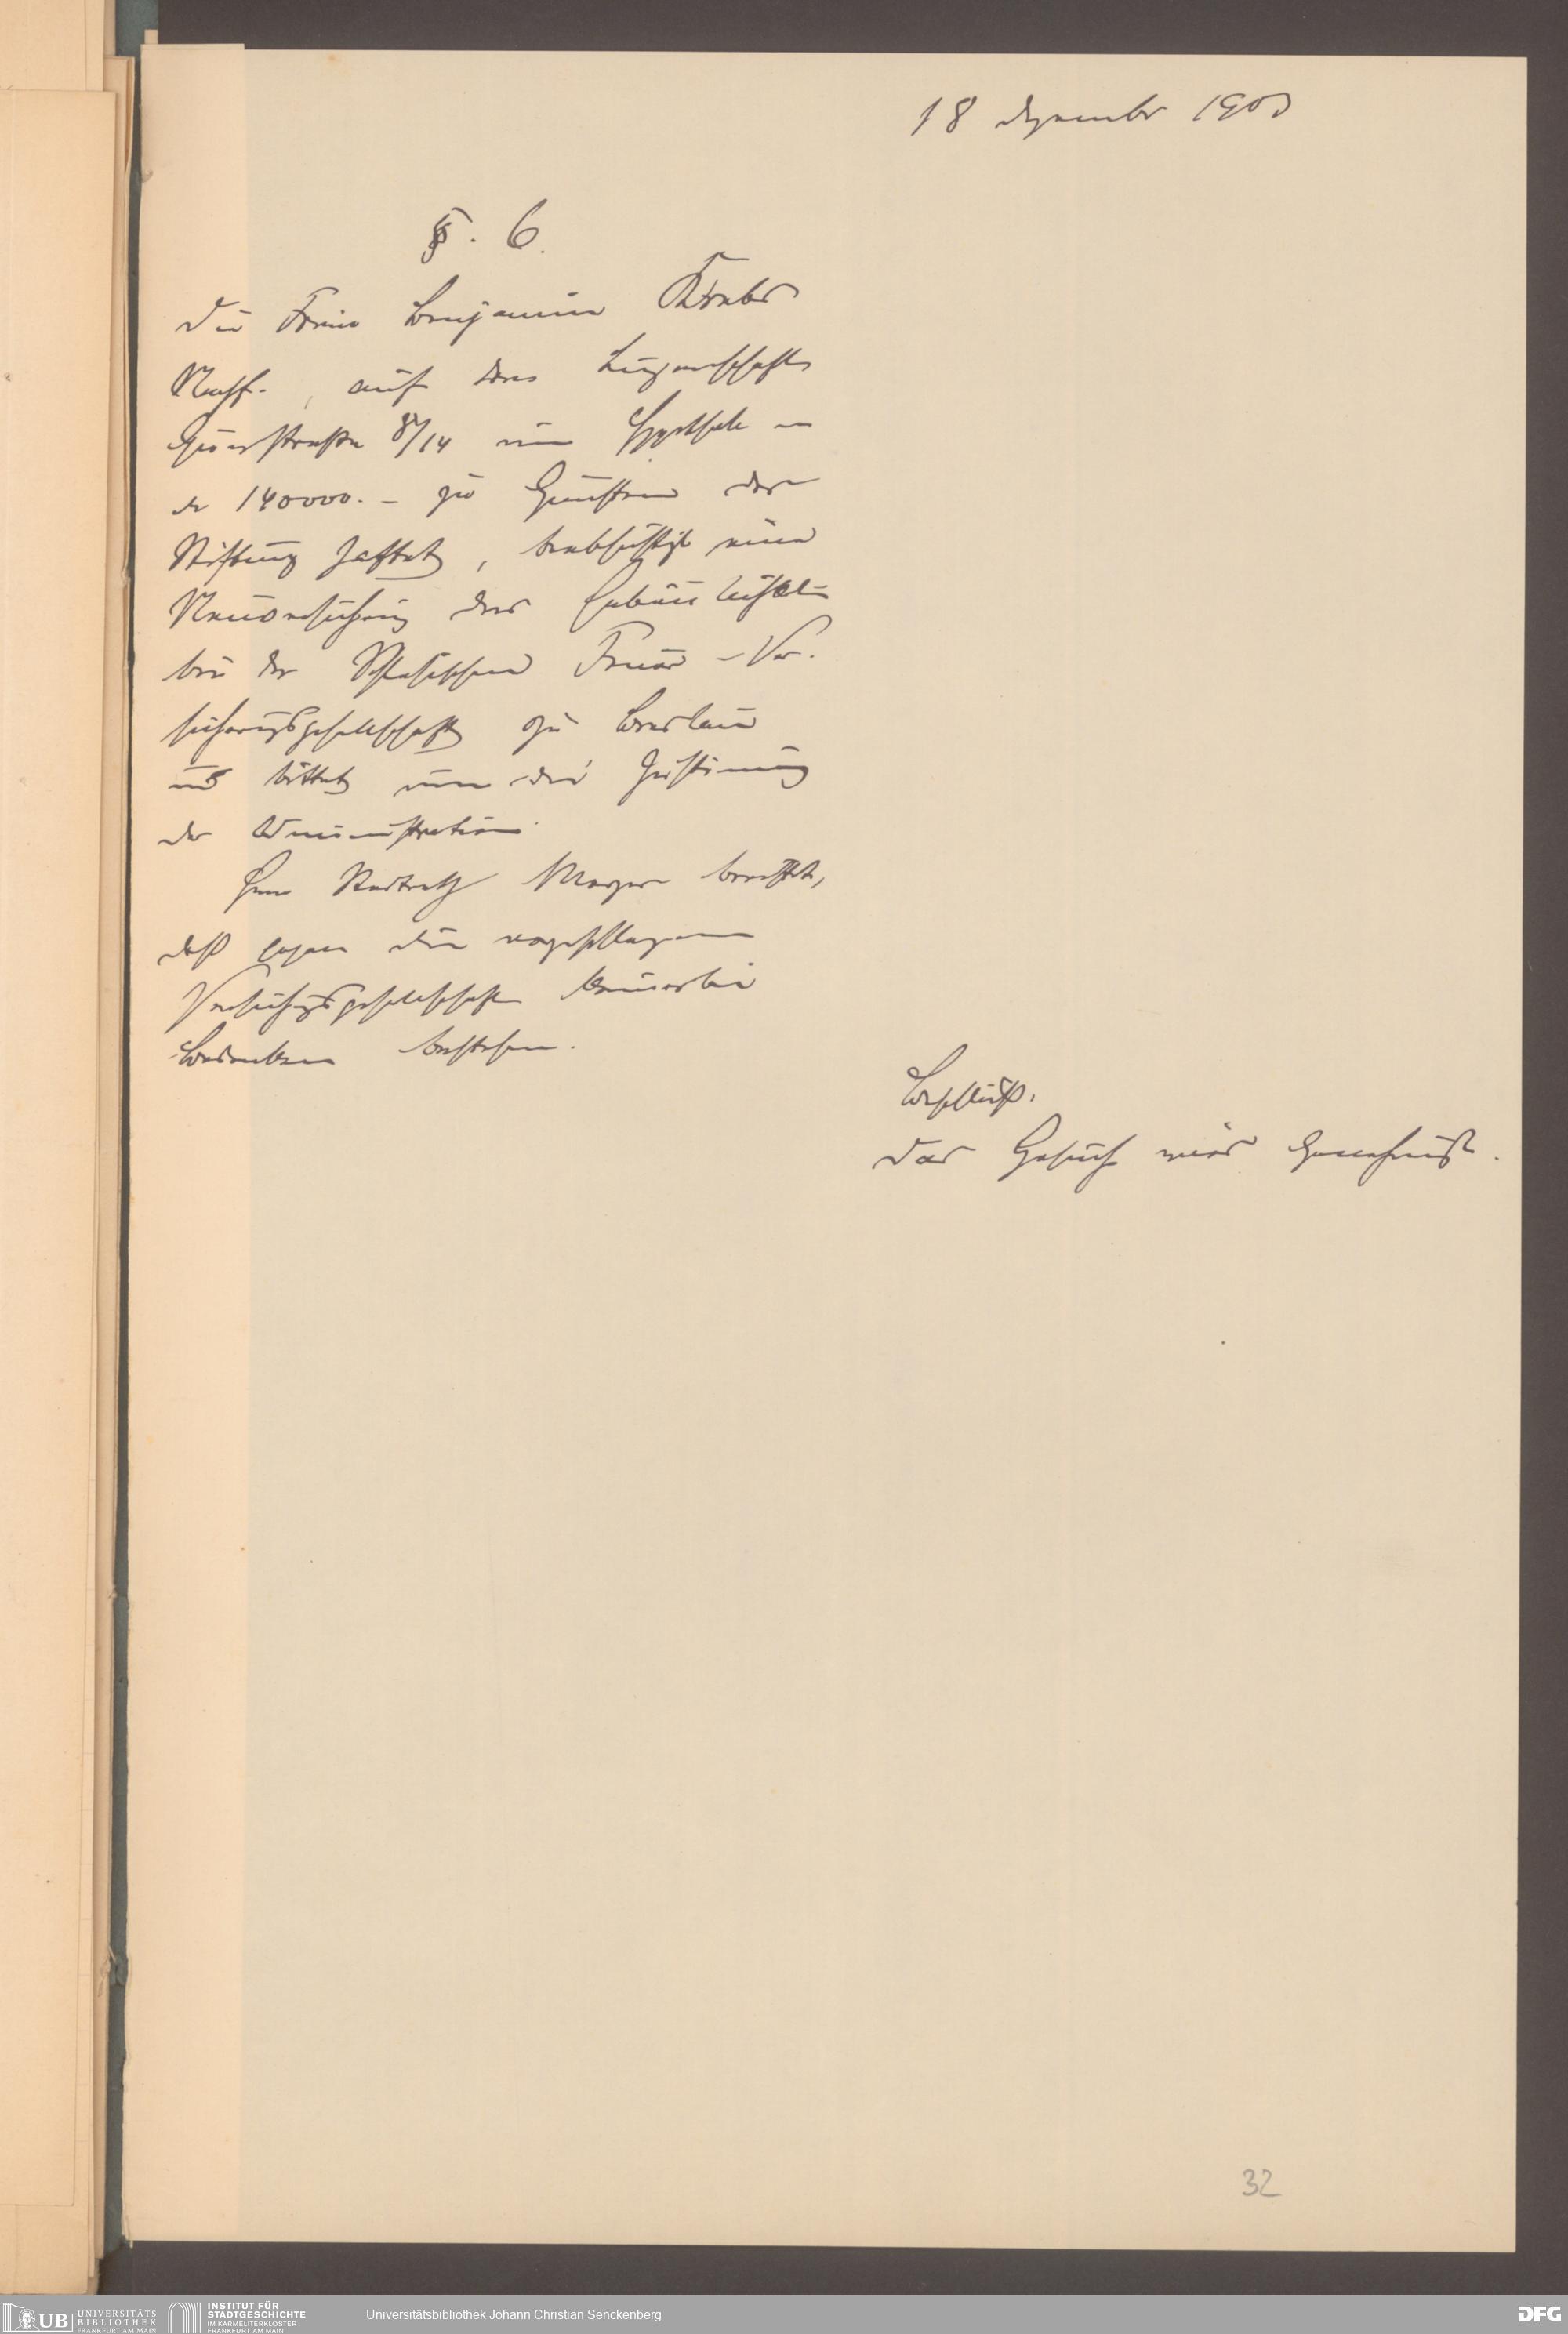 18 Dezember 1900
§. 6.
Die Firma Benjamin Krebs
Nachf., auf deren Liegenschaft
8/14 eine Hypothek von
M 140000.- zu Gunsten der
Stiftung haftet, beabsichtigt eine
Neuversicherung der
bei der Schlesischen Feuer-Ver-
sicherungsgesellschaft zu Breslau
und bittet um die Zustimmung
der Administration.
Herr Stadtrath Mayer berichtet,
daß gegen die vorgeschlagene
Versicherungsgesellschaft keinerlei
Bedenken bestehen.
Beschluß.
Das Gesuch wird genehmigt.
32
UB UNIVERSITÄTS
BIBLIOTHEK
FRANKFURT AM MAIN
INSTITUT FÜR
STADTGESCHICHTE
IM KARMELITERKLOSTER
FRANKFURT AM MAIN
Universitätsbibliothek Johann Christian Senckenberg
DFG